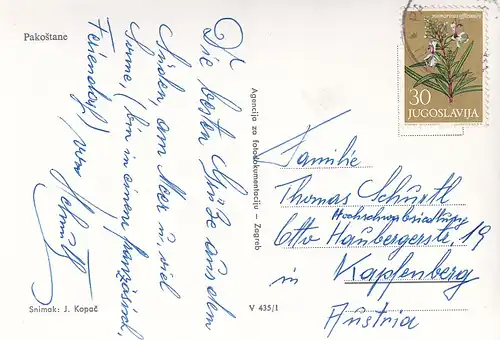 Pakoštane
Die besten Grüße aus dem
Süden, am Meer u. viel
Sonne, (bin in einem französisch.
Feriendorf.) von
Agencija za fotodokumentaciju — Zagreb
30
JUGOSLAVIJA
Familie
Thomas Schürtl
Otto Haubergerstr. 19
in Kapfenberg
Austria
Snimak: J. Kopač
V 435/1